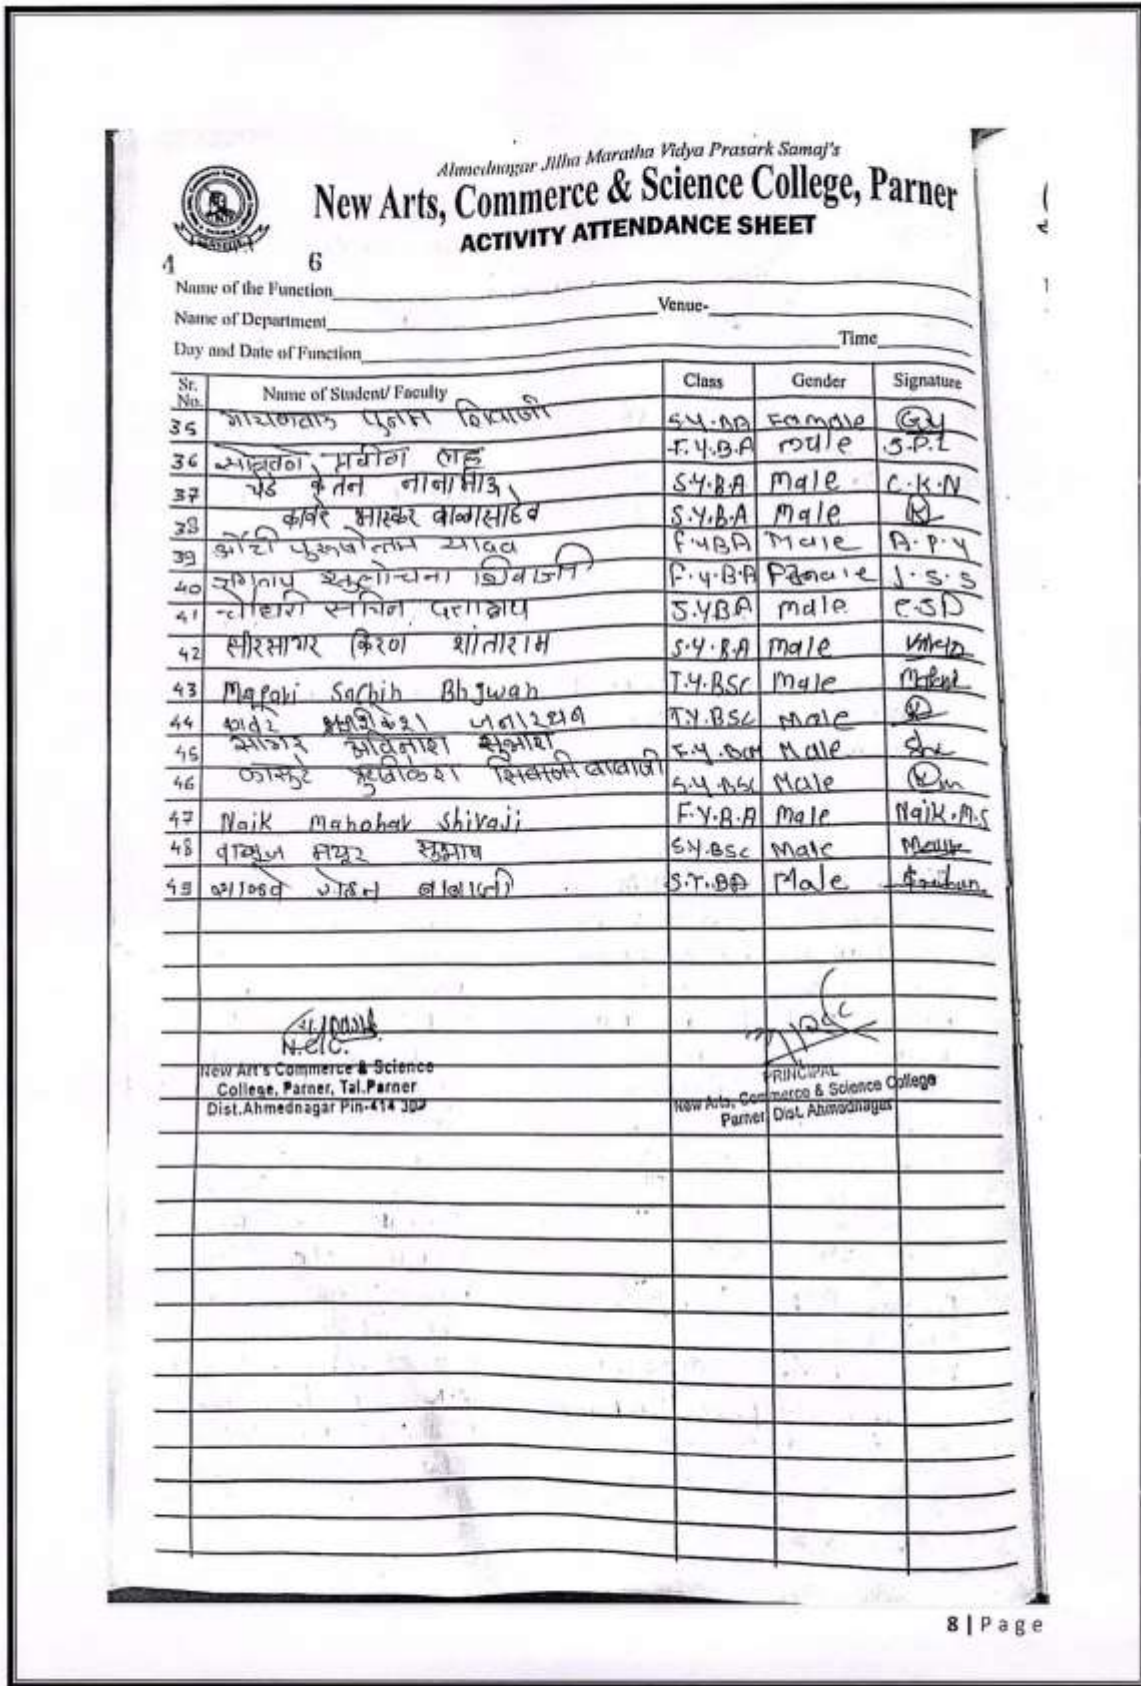 Ahmednagar Jilha Maratha Vidya Prasark Samaj's
New Arts, Commerce & Science College, Parner
ACTIVITY ATTENDANCE SHEET
6
Name of the Function
Venue-
Name of Department
Time
Day and Date of Function
Sr. No. Name of Student/ Faculty Class Gender Signature
35 गायकवाड पुनम शिवाजी S.Y.BA Female GY
36 प्रविण लहू F.Y.B.A male S.P.L
37 चेडे केतन नानाभाऊ S.Y.B.A Male C.K.N
38 कावरे भास्कर बाळासाहेब S.Y.B.A Male
39 औटी पुरुषोत्तम यादव F.YBA Male A.P.Y
40 जगताप सुलोचना शिवाजी F.Y.B.A Female J.S.S
41 चौधरी सचिन दत्तात्रय S.YBA male C.S.D
42 क्षीरसागर किरण शांताराम S.Y.B.A Male
43 Mapari Sachin Bhgwan T.Y.BSC Male
44 कावरे जनारधन T.Y.BSC Male
45 सागर अविनाश सुभाश F.Y. Male
46 बाबाजी S.Y.BSC Male
47 Naik Manohar Shivaji F.Y.B.A Male Naik.M.S
48 वाळूंज मयूर सुभाष S.Y.BSC Male
49 रोहन बाबाजी S.Y.BA Male
New Art's Commerce & Science
College, Parner, Tal.Parner
Dist.Ahmednagar Pin-414 302
PRINCIPAL
New Arts, Commerce & Science College
Parner Dist. Ahmednagar
8 | Page